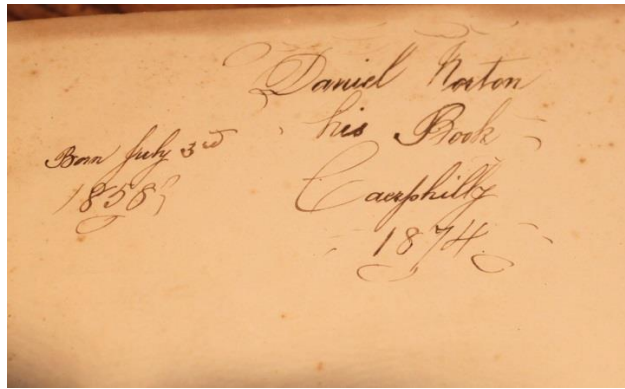 Daniel Norton
his Book
Caerphilly
1874
Born July 3rd
1858